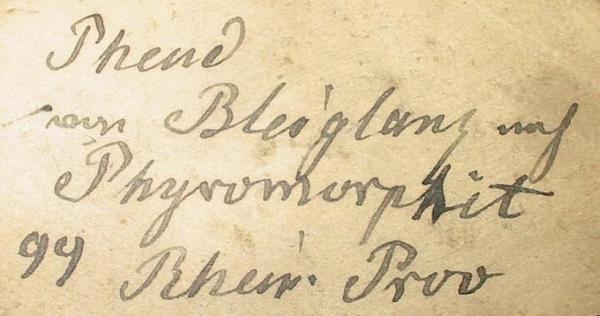 Pheud
von Bleiglanz nach
Phyromorphit
99 Rhein. Prov